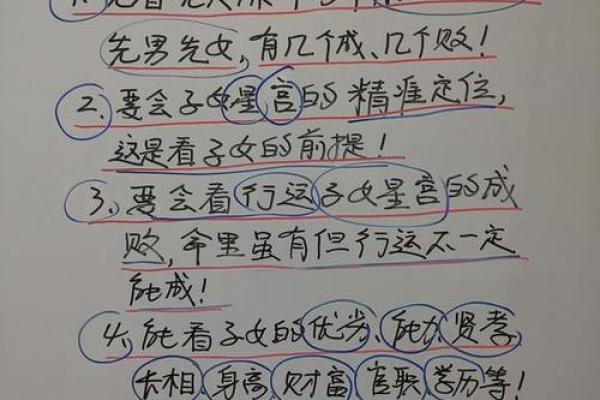 先男先女,有几个成、几个败!
2、要会子女星,宫的精准定位,
这是看子女的前提!
3、要会看行运子女星宫的成
败,命里虽有但行运不一定
能成!
4、能看子女的优劣、能力、贤孝,
长相、身高、财富、官职、学历等!